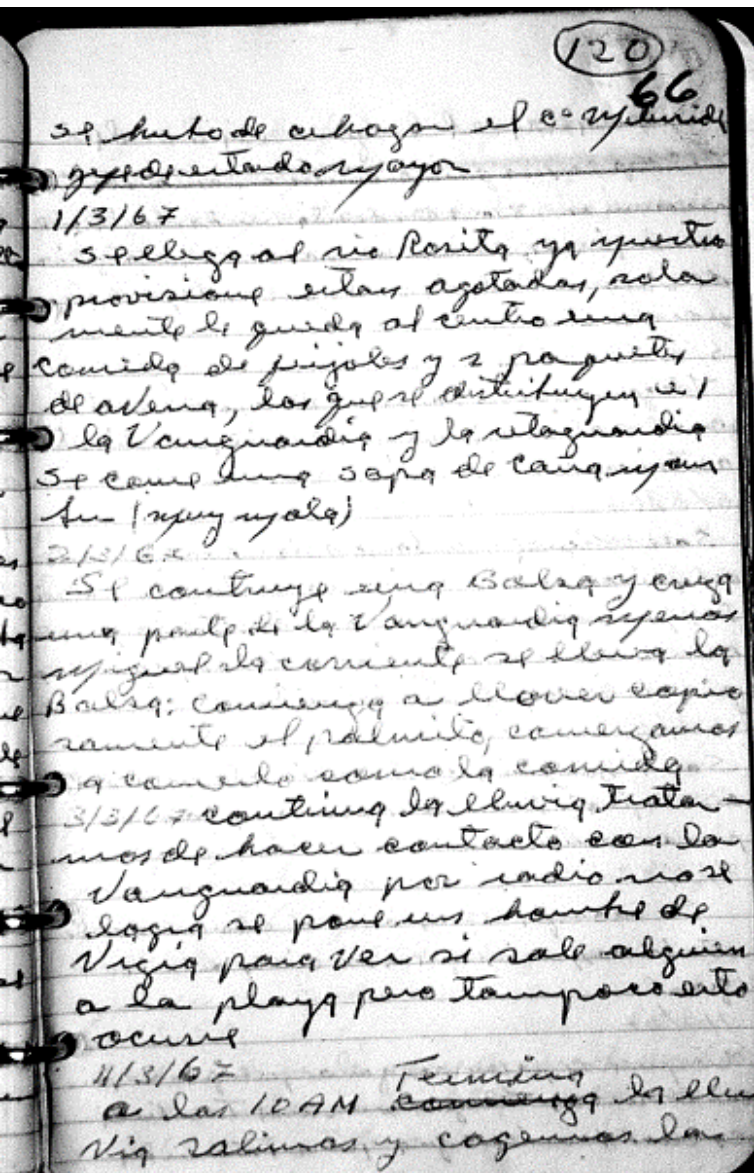 120
66
se hubo de ahogar el co
gefe de estado mayor
1/3/67
Se llega al rio Rosita ya nuestra
provisione estan agotadas, sola
mente le queda al centro una
comida de frijoles y 2 paquetes
de avena, los que se distribuyen
la Vanguardia y la retaguardia
se come una sopa de
(muy mala)
2/3/67
Se contruye una Balsa y cruza
una parte de la Vanguardia menos
Miguel la corriente se lleva la
Balsa; comienza a llover copio
samente el palmito, comenzamos
a comerlo como la comida
3/3/67 continua la lluvia trata-
mos de hacer contacto con la
Vanguardia por radio no se
logra se pone un hombre de
Vigia para Ver si sale alguien
a la playa pero tampoco esto
ocurre
4/3/67 Termina
a las 10 AM comienza la llu
via salimos y cogemos las